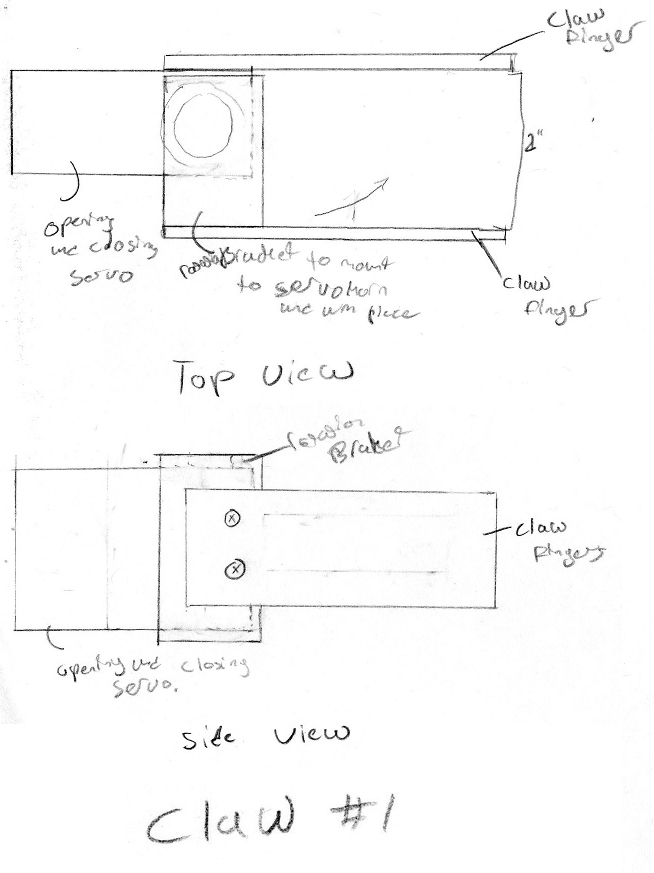 Claw
Finger
2"
opening
and closing
servo
Bracket to mount
to servo horn
and place
Claw
Finger
Top view
Bracket
Claw
Fingers
opening and closing
servo.
Side view
Claw #1